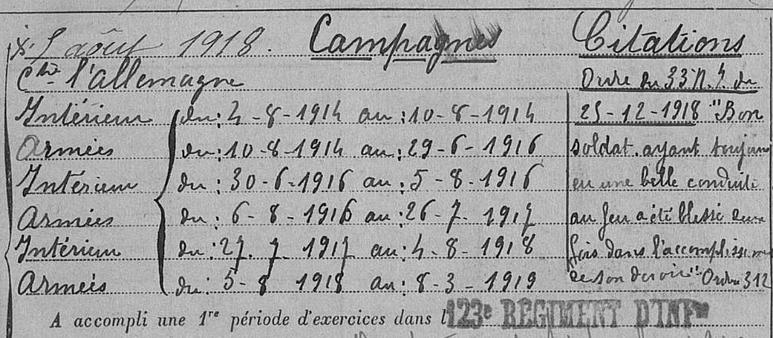 août 1918. Campagnes Citations
Ctre l'allemagne Ordre du 33 R.I. du
Intérieur du: 4-8-1914 au: 10-8-1914 25-12-1918 "Bon
Armées du: 10-8-1914 au: 29-6-1916 soldat ayant toujours
Intérieur du: 30-6-1916 au: 5-8-1916 eu une belle conduite
Armées du: 6-8-1916 au: 26-7-1917 au feu a été blessé deux
Intérium du: 27.7.1917 au: 4-8-1918 fois dans l'accomplissement
Armées du: 5-8 1918 au: 8-3-1919 de son devoir" Ordre 312
A accompli une 1re période d'exercices dans l 123e RÉGIMENT D'INFie